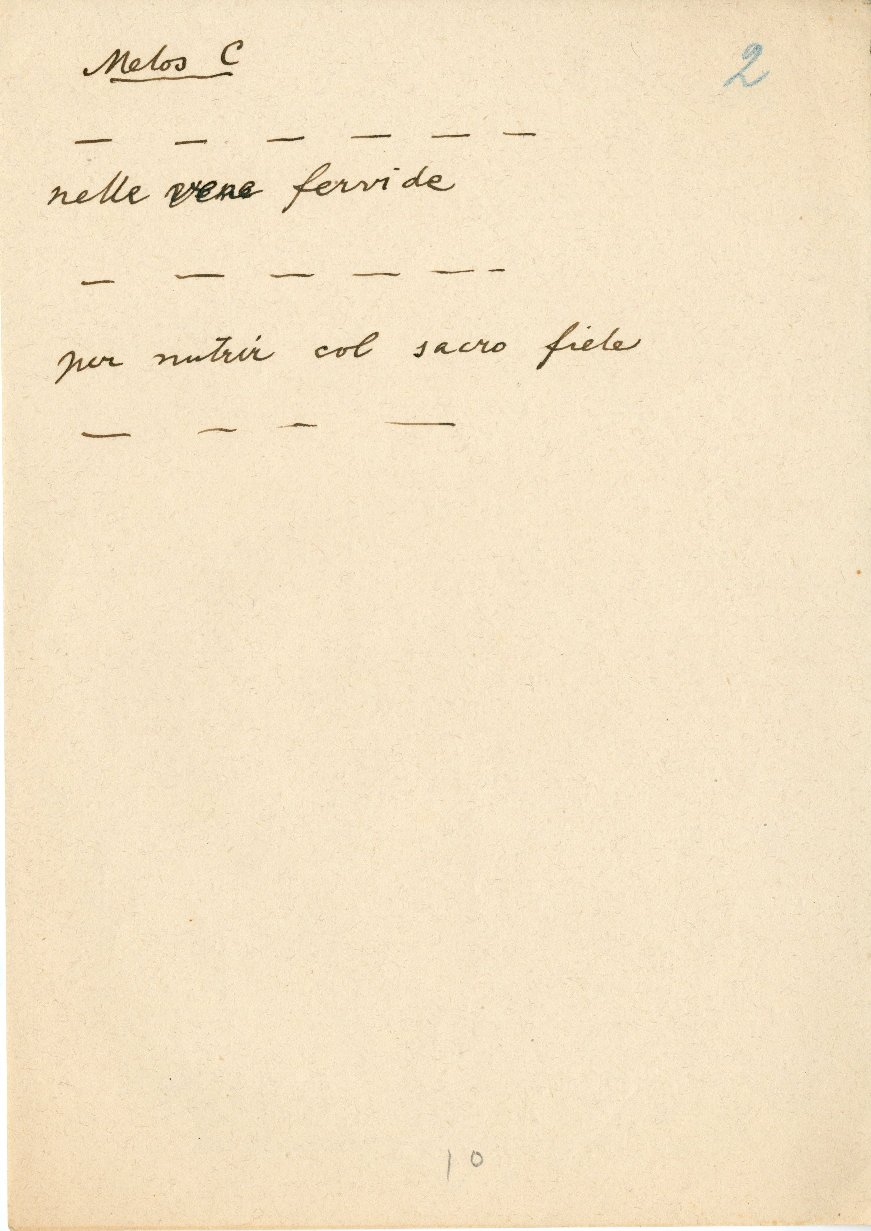 Melos C
2
— — — — — —
nelle vene fervide
— — — — — -
per nutrir col sacro fiele
— — — —
10